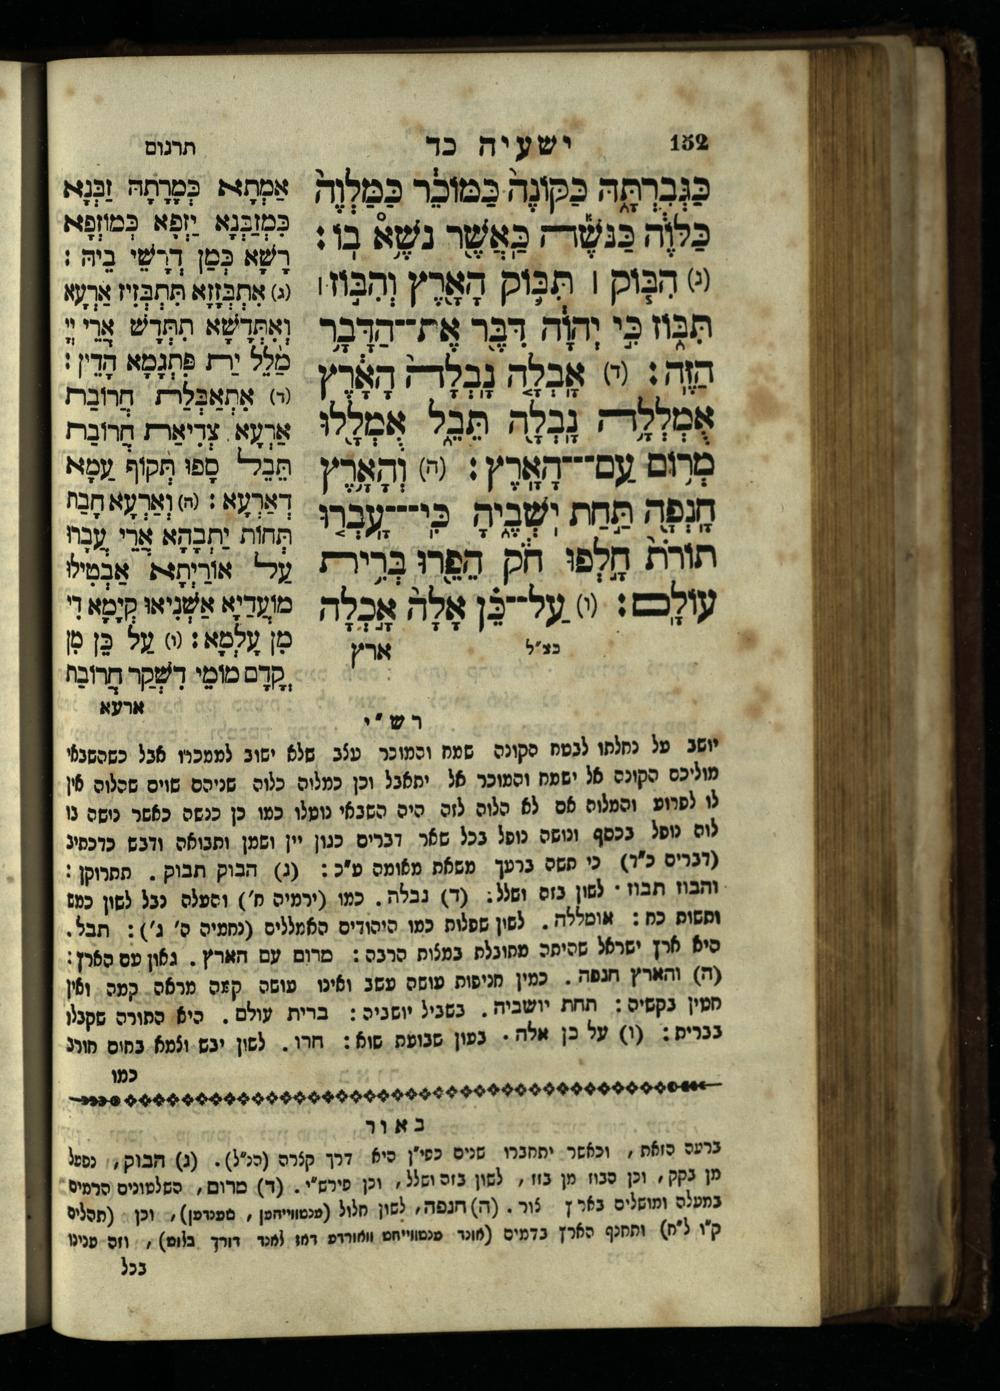 152
ישעיה כד
תרגום
כַּגְּבִרְתָּהּ כַּקּוֹנֶה כַּמּוֹכֵר כַּמַּלְוֶה
כַּלֹּוֶה כַּנֹּשֶׁה כַּאֲשֶׁר נֹשֶׁא בוֹ :
(ג) הִבּוֹק ׀ תִּבּוֹק הָאָרֶץ וְהִבּוֹז ׀
תִּבּוֹז כִּי יְהוָֹה דִּבֶּר אֶת־הַדָּבָר
הַזֶּה : (ד) אָבְלָה נָבְלָה הָאָרֶץ
אֻמְלְלָה נָבְלָה תֵּבֵל אֻמְלָלוּ
מְרוֹם עַם־הָאָרֶץ : (ה) וְהָאָרֶץ
חָנְפָה תַּחַת יֹשְׁבֶיהָ כִּי־עָבְרוּ
תוֹרֹת חָלְפוּ חֹק הֵפֵרוּ בְּרִית
עוֹלָם : (ו) עַל־כֵּן אָלָה אָכְלָה
כצ״ל
ארץ
אַמְתָא כְּמָרָתָהּ זַבְנָא
כִּמְזַבְּנָא יַזְפָא כְּמוֹזְפָא
רָשָׁא כְּמַן דְרָשֵׁי בֵיהּ :
(ג) אִתְבְּזָזָא תִּתְבְּזִיז אַרְעָא
וְאִתְּדָשָׁא תִּתְּדָשׁ אֲרֵי יְיָ
מַלֵּל יַת פִּתְגָמָא הָדֵין :
(ד) אִתְאַבְּלַת חֲרוֹבַת
אַרְעָא צְדִיאַת חֲרוֹבַת
תֵּבֵל סָפוּ תְּקוֹף עַמָא
דְאַרְעָא : (ה) וְאַרְעָא חָבַת
תְּחוֹת יַתְבָהָא אֲרֵי עֲבָרוּ
עַל אוֹרַיְתָא אַבְטִילוּ
מוֹעֲדַיָא אַשְׁנִיאוּ קְיָמָא דִי
מִן עָלְמָא : (ו) עַל כֵּן מִן
קֳדָם מוֹמֵי דִשְׁקַר חֲרוֹבַת
ארעא
רש״י
יושב על נחלתו לבטח הקונה שמח והמוכר עצב שלא ישוב לממכרו אבל כשהשבאי
מוליכם הקונה אל ישמח והמוכר אל יתאבל וכן כמלוה כלוה שניהם שוים שהלוה אין
לו לפרוע והמלוה אם לא הלוה לזה היה השבאי נוטלו כמו כן כנשה כאשר נושה בו
לוה נופל בכסף ונושה נופל בכל שאר דברים כגון יין ושמן ותבואה ודבש כדכתיב
(דברים כ״ד) כי תשה ברעך משאת מאומה ע״כ : (ג) הבוק תבוק . תתרוקן :
והבוז תבוז . לשון בזה ושלל : (ד) נבלה . כמו (ירמיה ח׳) והעלה נבל לשון כמש
ותשות כח : אומללה . לשון שפלות כמו היהודים האמללים (נחמיה ה׳ ג׳) : תבל .
היא ארץ ישראל שהיתה מתובלת במצות הרבה : מרום עם הארץ . גאון עם הארץ :
(ה) והארץ חנפה . כמין חניפות עושה עשב ואינו עושה קצה מראה קמה ואין
חטין בקשיה : תחת יושביה . בשביל יושביה : ברית עולם . היא התורה שקבלו
בברית : (ו) על כן אלה . בעון שבועת שוא : חרו . לשון יבש וצמא בחום חורב
כמו
באור
ברעה הזאת , וכאשר יתחברו שנים כפי״ן היא דרך קצרה (הנ״ל) . (ג) הבוק , נפעל
מן בקק , וכן הבוז מן בזז , לשון בזה ושלל , וכן פירש״י . (ד) מרום , השלטונים הרמים
במעלה ומושלים בארץ צור . (ה) חנפה , לשון חלול , וכן (תהלים
ק״ו ל״ח) ותחנף הארץ בדמים (אונד ענטווייהט וואורדע דאז לאנד דורך בלוט) , וזה ענינו
בכל